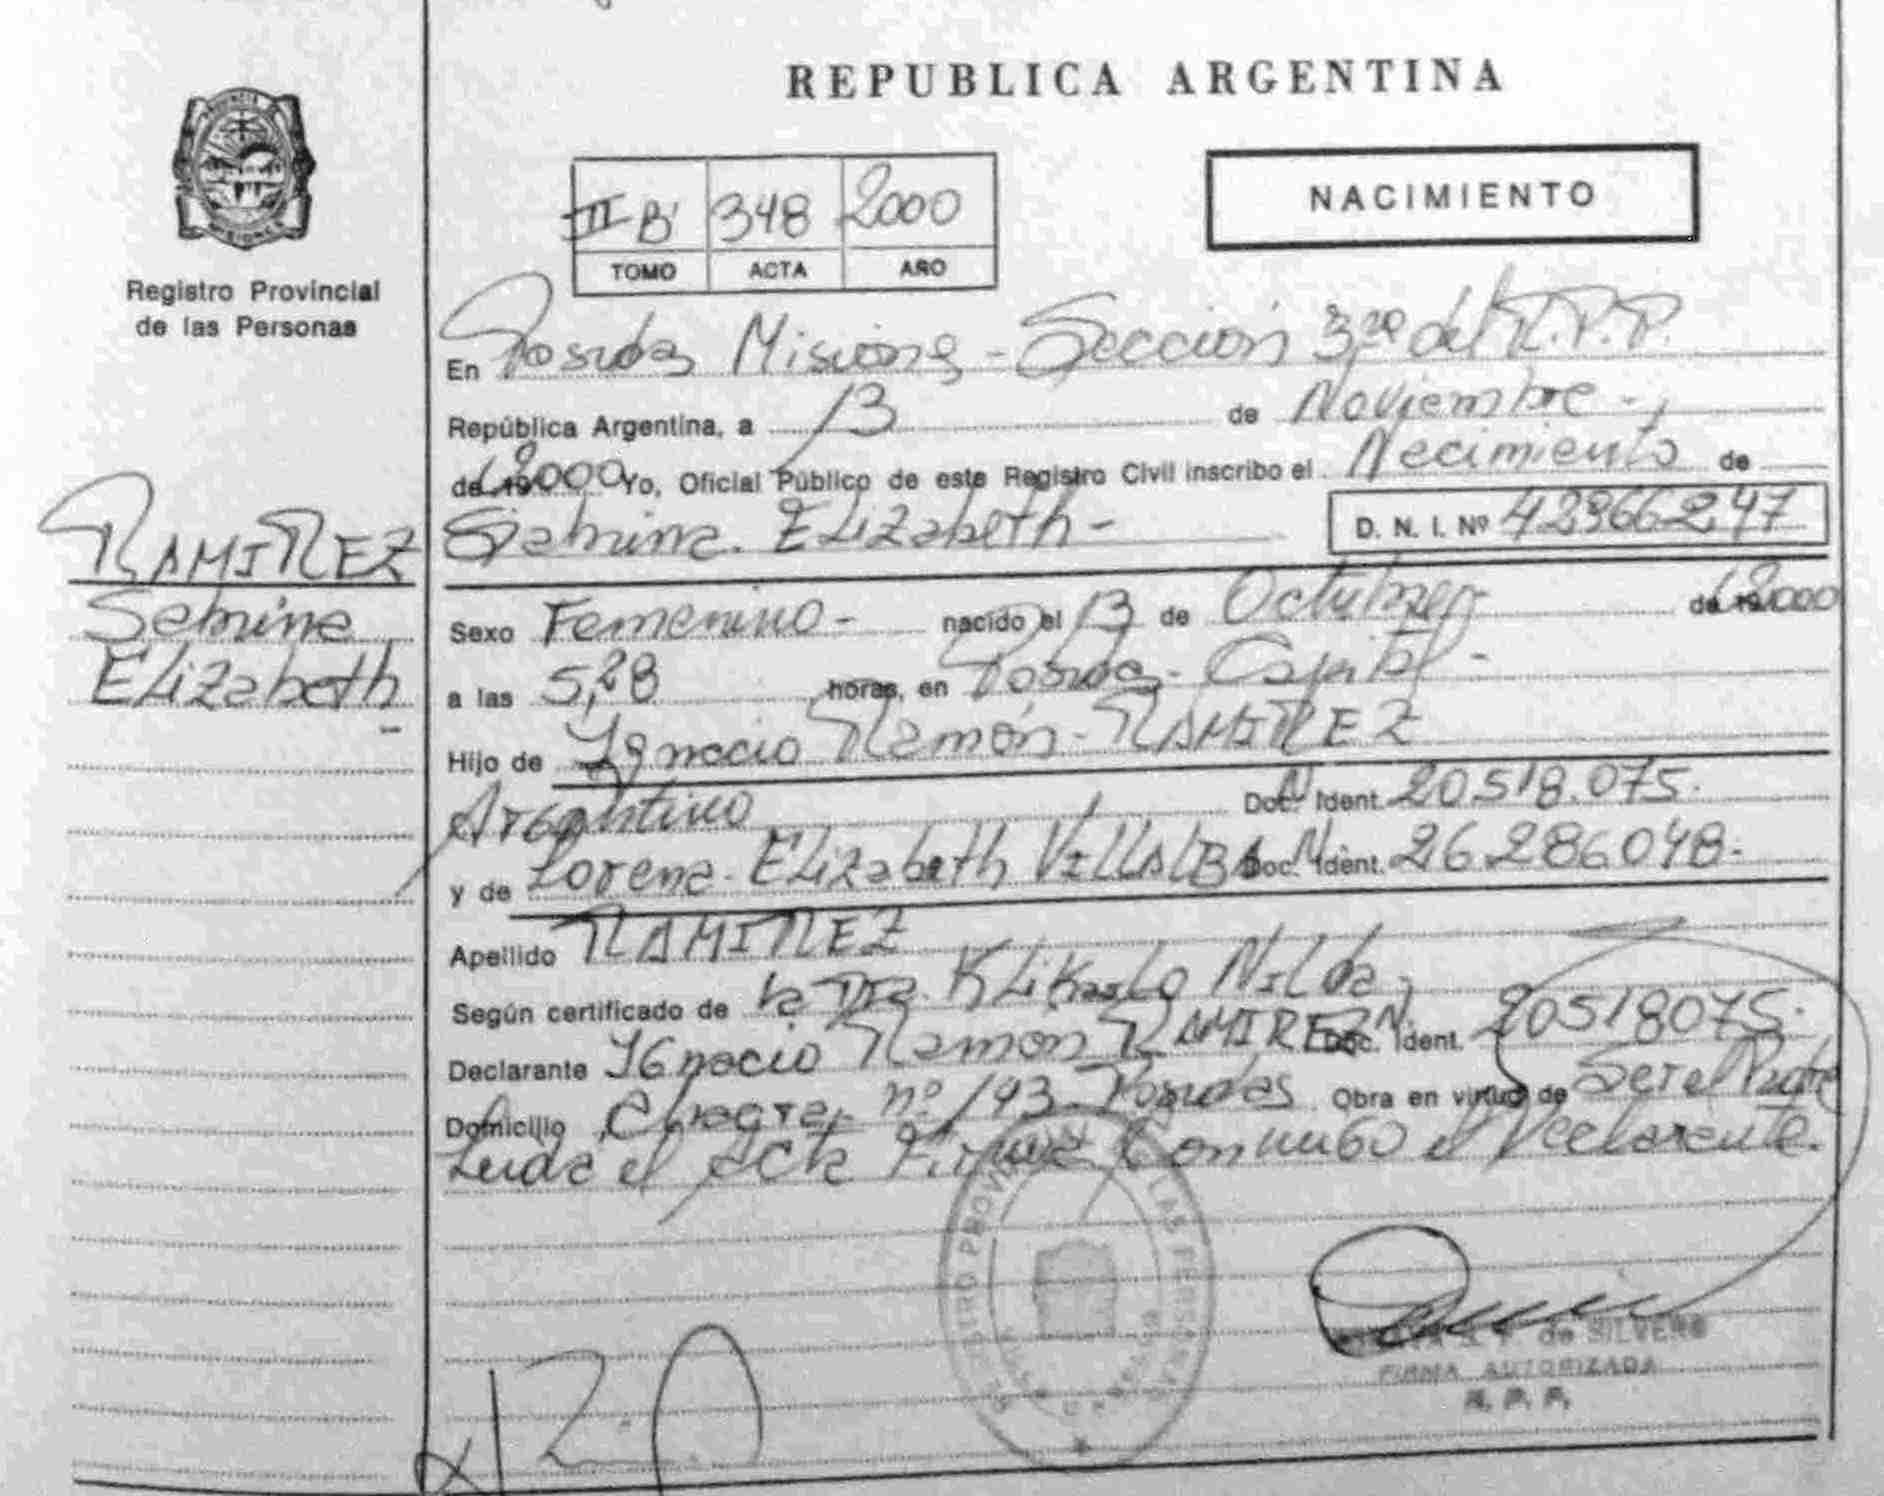 REPUBLICA ARGENTINA
NACIMIENTO
II B 348 2000
TOMO ACTA AÑO
Registro Provincial
de las Personas
En Posadas Misiones - Sección 3ra del R.P.P.
República Argentina, a 13 de Noviembre -
de 2000 Yo, Oficial Público de este Registro Civil inscribo el Nacimiento de
Sabrina Elizabeth - D. N. I. Nº 42966247
RAMIREZ
Sabrina
Elizabeth
-
Sexo Femenino - nacido el 13 de Octubre de 2000
a las 5,28 horas, en Posadas - Capital -
Hijo de Ignacio Ramón RAMIREZ
Argentino Doc. Ident. 20.518.075.
y de Lorena Elizabeth VILLALBA Doc. Ident. 26.286.048.
Apellido RAMIREZ
Según certificado de la Dra. Nilda
Declarante Ignacio Ramon RAMIREZ Doc. Ident. 20518075.
Domicilio nº 193 Posadas Obra en virtud de Ser el Padre
Leida el acta Firma Conmigo el Declarante.
de SILVERO
FIRMA AUTORIZADA
R. P. P.